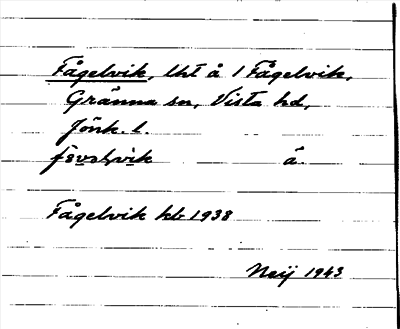 Fågelvik, lht å 1 Fågelvik,
Gränna sn, Vista hd,
Jönk. l.
å
Fågelvik hb 1938
Neij 1943